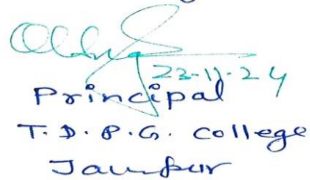 23-11-24
Principal
T. D. P. G. College
Jaunpur